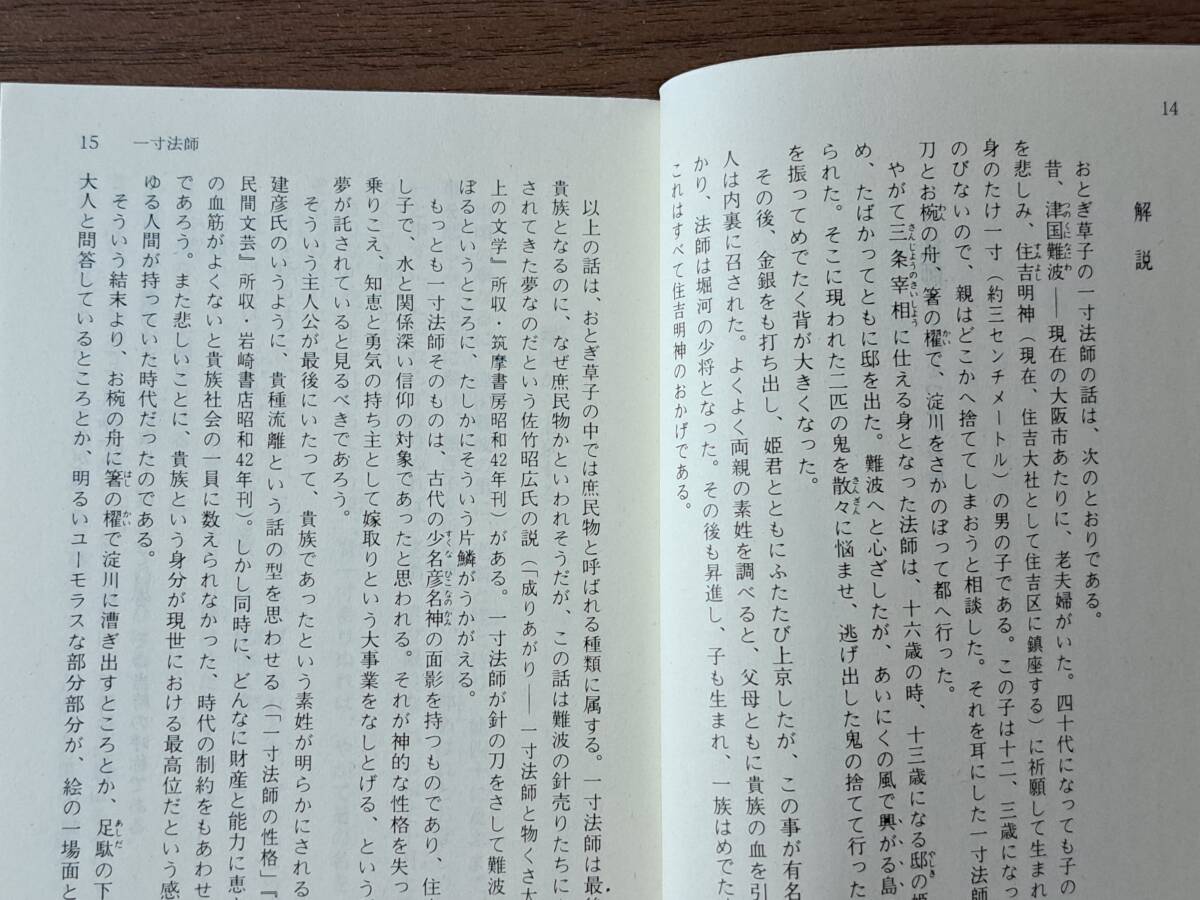 14
解説
おとぎ草子の一寸法師の話は、次のとおりである。
昔、津国難波――現在の大阪市あたりに、老夫婦がいた。四十代になっても子の
を悲しみ、住吉明神(現在、住吉大社として住吉区に鎮座する)に祈願して生まれ
身のたけ一寸(約三センチメートル)の男の子である。この子は十二、三歳になっ
のびないので、親はどこかへ捨ててしまおうと相談した。それを耳にした一寸法師
刀とお椀の舟、箸の櫂で、淀川をさかのぼって都へ行った。
やがて三条宰相に仕える身となった法師は、十六歳の時、十三歳になる邸の姫
め、たばかってともに邸を出た。難波へと心ざしたが、あいにくの風で興がる島
られた。そこに現われた二匹の鬼を散々に悩ませ、逃げ出した鬼の捨てて行った
を振ってめでたく背が大きくなった。
その後、金銀をも打ち出し、姫君とともにふたたび上京したが、この事が有名
人は内裏に召された。よくよく両親の素姓を調べると、父母ともに貴族の血を引
かり、法師は堀河の少将となった。その後も昇進し、子も生まれ、一族はめでた
これはすべて住吉明神のおかげである。
15 一寸法師
以上の話は、おとぎ草子の中では庶民物と呼ばれる種類に属する。一寸法師は最
貴族となるのに、なぜ庶民物かといわれそうだが、この話は難波の針売りたちに
されてきた夢なのだという佐竹昭広氏の説(「成りあがり――一寸法師と物くさ太
上の文学』所収・筑摩書房昭和42年刊)がある。一寸法師が針の刀をさして難波
ぼるというところに、たしかにそういう片鱗がうかがえる。
もっとも一寸法師そのものは、古代の少名彦名神の面影を持つものであり、住
し子で、水と関係深い信仰の対象であったと思われる。それが神的な性格を失っ
乗りこえ、知恵と勇気の持ち主として嫁取りという大事業をなしとげる、という
夢が託されていると見るべきであろう。
そういう主人公が最後にいたって、貴族であったという素姓が明らかにされる
建彦氏のいうように、貴種流離という話の型を思わせる(「一寸法師の性格」『
民間文芸』所収・岩崎書店昭和42年刊)。しかし同時に、どんなに財産と能力に恵
の血筋がよくないと貴族社会の一員に数えられなかった、時代の制約をもあわせ
であろう。また悲しいことに、貴族という身分が現世における最高位だという感
ゆる人間が持っていた時代だったのである。
そういう結末より、お椀の舟に箸の櫂で淀川に漕ぎ出すところとか、足駄の下
大人と問答しているところとか、明るいユーモラスな部分部分が、絵の一場面と